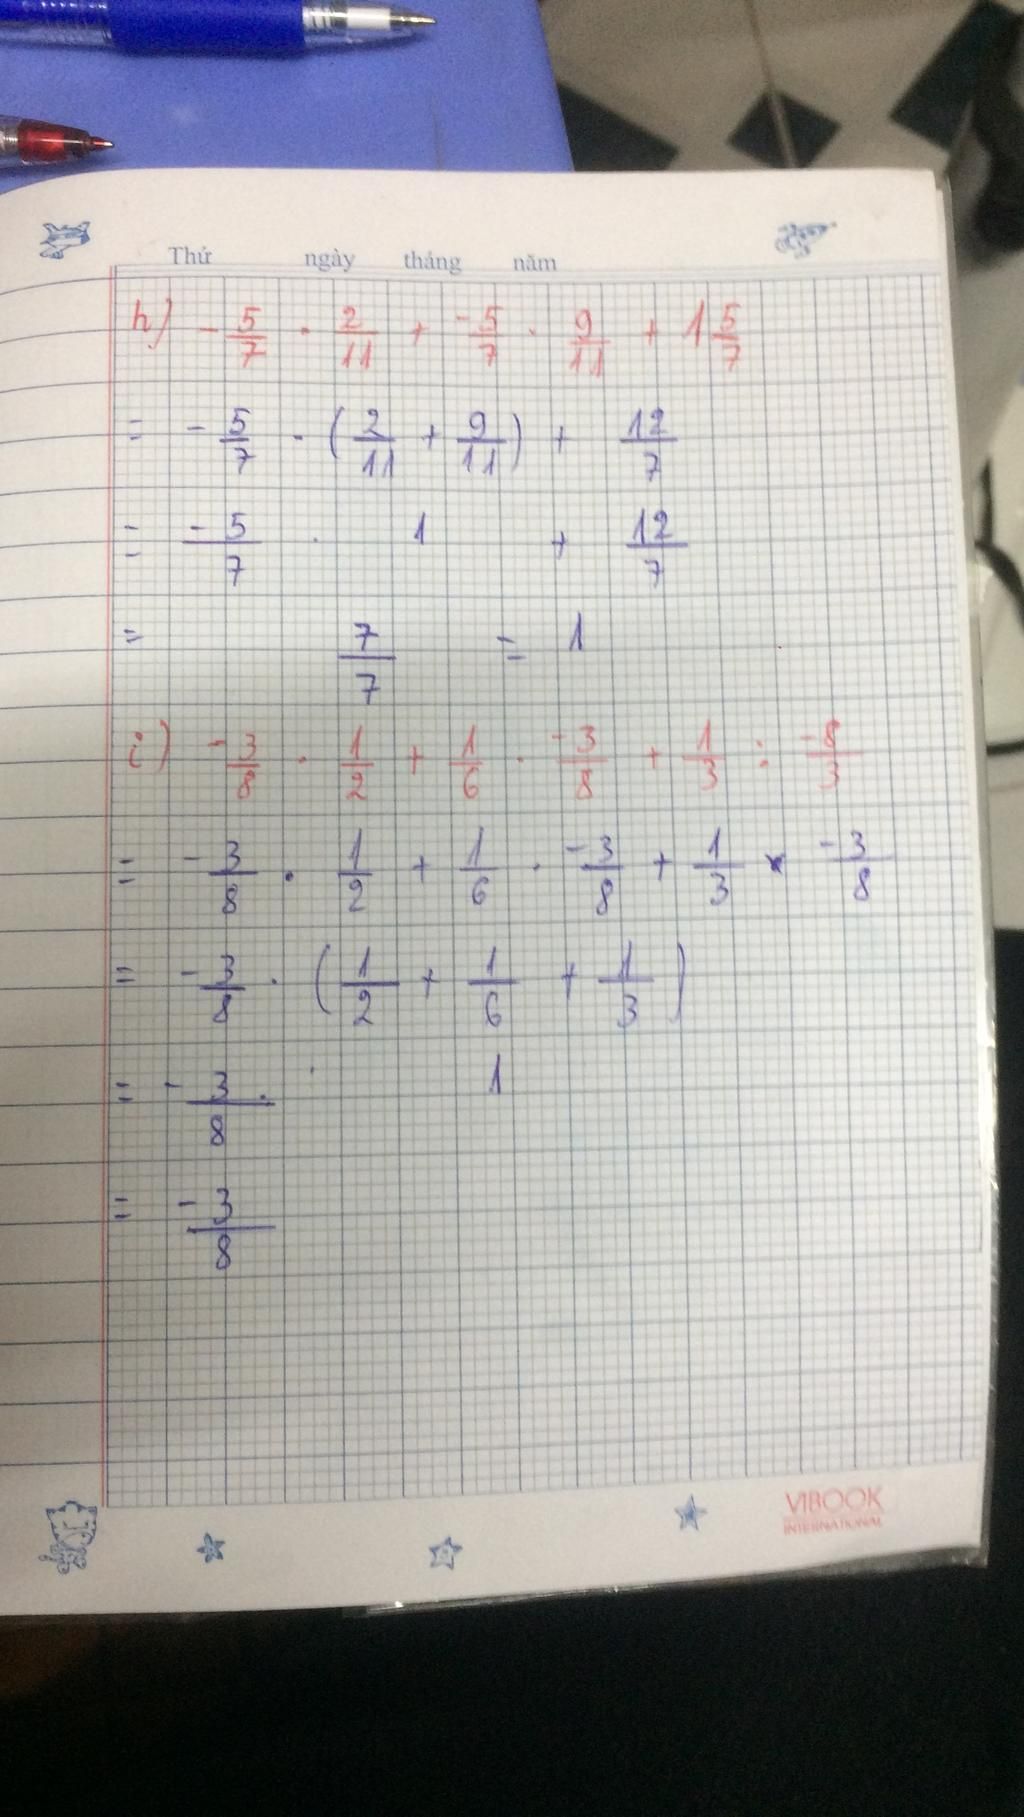 Thứ ngày tháng năm
h) -5/7 . 2/11 + -5/7 . 9/11 + 1 5/7
= -5/7 . (2/11 + 9/11) + 12/7
= -5/7 . 1 + 12/7
= 7/7 = 1
i) -3/8 . 1/2 + 1/6 . -3/8 + 1/3 : -8/3
= -3/8 . 1/2 + 1/6 . -3/8 + 1/3 x -3/8
= -3/8 . (1/2 + 1/6 + 1/3)
= -3/8 . 1
= -3/8
VIBOOK
INTERNATIONAL